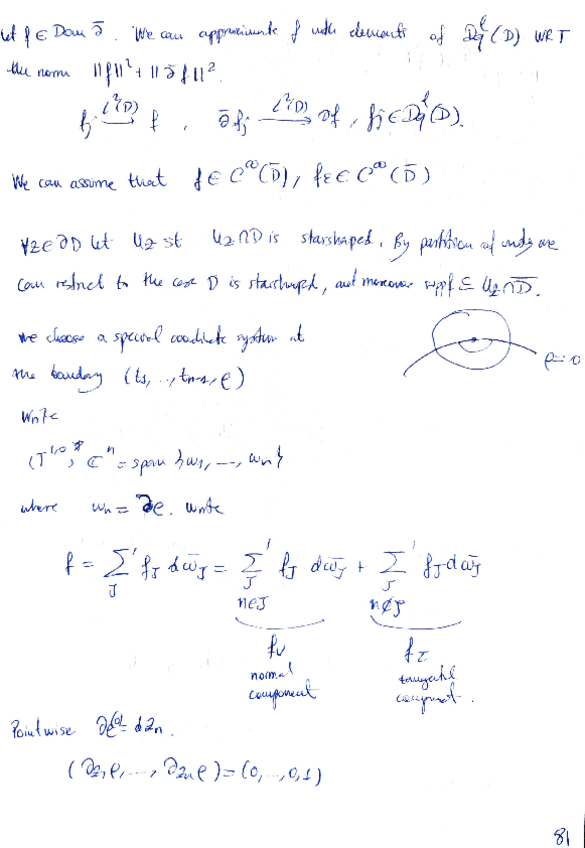 Let f ∈ Dom ∂̄. We can approximate f with elements of D_q^l(D) WRT
the norm ||f||² + ||∂̄f||².
f_j →^{L²(D)} f , ∂̄f_j →^{L²(D)} ∂f , f_j ∈ D_q^l(D).
We can assume that f ∈ C^∞(D̄), f_ε ∈ C^∞(D̄)
∀z ∈ ∂D let U_z st U_z ∩ D is starshaped. By partition of unity we
can restrict to the case D is starshaped, and moreover supp f ⊆ U_z ∩ D̄.
we choose a special coordinate system at
the boundary (t_1, .., t_{n-1}, ρ)
ρ = 0
Write
(T^{1,0})^* ℂ^n = span {ω_1, --, ω_n}
where ω_n = ∂ρ. write
f = Σ'_J f_J dω̄_J = Σ'_J f_J dω̄_J + Σ'_J f_J dω̄_J
n∈J n∉J
f_ν f_τ
normal component tangential component.
Pointwise ∂ρ^{(0)} = dz_n.
(∂_{z_1}ρ, ..., ∂_{z_n}ρ) = (0, .., 0, 1)
81